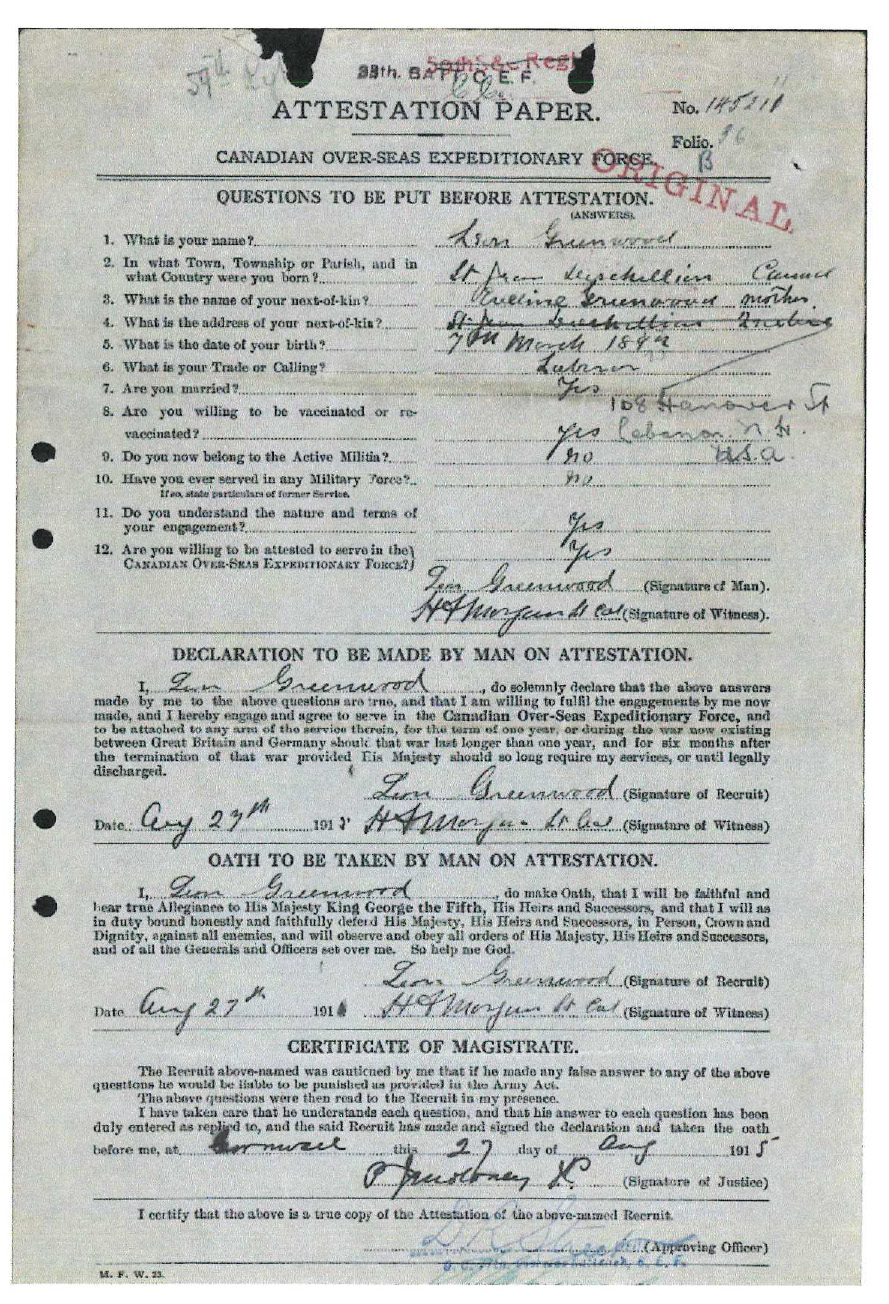 59th
38th. BATT. C. E. F.
ATTESTATION PAPER.
No. 145211
Folio. 96
B
CANADIAN OVER-SEAS EXPEDITIONARY FORCE.
ORIGINAL
QUESTIONS TO BE PUT BEFORE ATTESTATION.
(ANSWERS).
1. What is your name? Leon Greenwood
2. In what Town, Township or Parish, and in
what Country were you born? St Jean
3. What is the name of your next-of-kin? Eveline Greenwood mother
4. What is the address of your next-of-kin? St Jean Quebec
5. What is the date of your birth? 7th March
6. What is your Trade or Calling? Laborer
7. Are you married? Yes
108 Hanover St
8. Are you willing to be vaccinated or re-
vaccinated? Yes Lebanon N H.
9. Do you now belong to the Active Militia? no U.S.A.
10. Have you ever served in any Military Force? no
If so, state particulars of former Service.
11. Do you understand the nature and terms of
your engagement? Yes
12. Are you willing to be attested to serve in the
CANADIAN OVER-SEAS EXPEDITIONARY FORCE? Yes
Leon Greenwood (Signature of Man).
H F Morgan Lt Col (Signature of Witness).
DECLARATION TO BE MADE BY MAN ON ATTESTATION.
I, Leon Greenwood, do solemnly declare that the above answers
made by me to the above questions are true, and that I am willing to fulfil the engagements by me now
made, and I hereby engage and agree to serve in the Canadian Over-Seas Expeditionary Force, and
to be attached to any arm of the service therein, for the term of one year, or during the war now existing
between Great Britain and Germany should that war last longer than one year, and for six months after
the termination of that war provided His Majesty should so long require my services, or until legally
discharged.
Leon Greenwood (Signature of Recruit)
Date Aug 27th 191 H F Morgan Lt Col (Signature of Witness)
OATH TO BE TAKEN BY MAN ON ATTESTATION.
I, Leon Greenwood, do make Oath, that I will be faithful and
bear true Allegiance to His Majesty King George the Fifth, His Heirs and Successors, and that I will as
in duty bound honestly and faithfully defend His Majesty, His Heirs and Successors, in Person, Crown and
Dignity, against all enemies, and will observe and obey all orders of His Majesty, His Heirs and Successors,
and of all the Generals and Officers set over me. So help me God.
Leon Greenwood (Signature of Recruit)
Date Aug 27th 191 H F Morgan Lt Col (Signature of Witness)
CERTIFICATE OF MAGISTRATE.
The Recruit above-named was cautioned by me that if he made any false answer to any of the above
questions he would be liable to be punished as provided in the Army Act.
The above questions were then read to the Recruit in my presence.
I have taken care that he understands each question, and that his answer to each question has been
duly entered as replied to, and the said Recruit has made and signed the declaration and taken the oath
before me, at Cornwall this 27 day of Aug 1915
(Signature of Justice)
I certify that the above is a true copy of the Attestation of the above-named Recruit.
(Approving Officer)
M. F. W. 23.